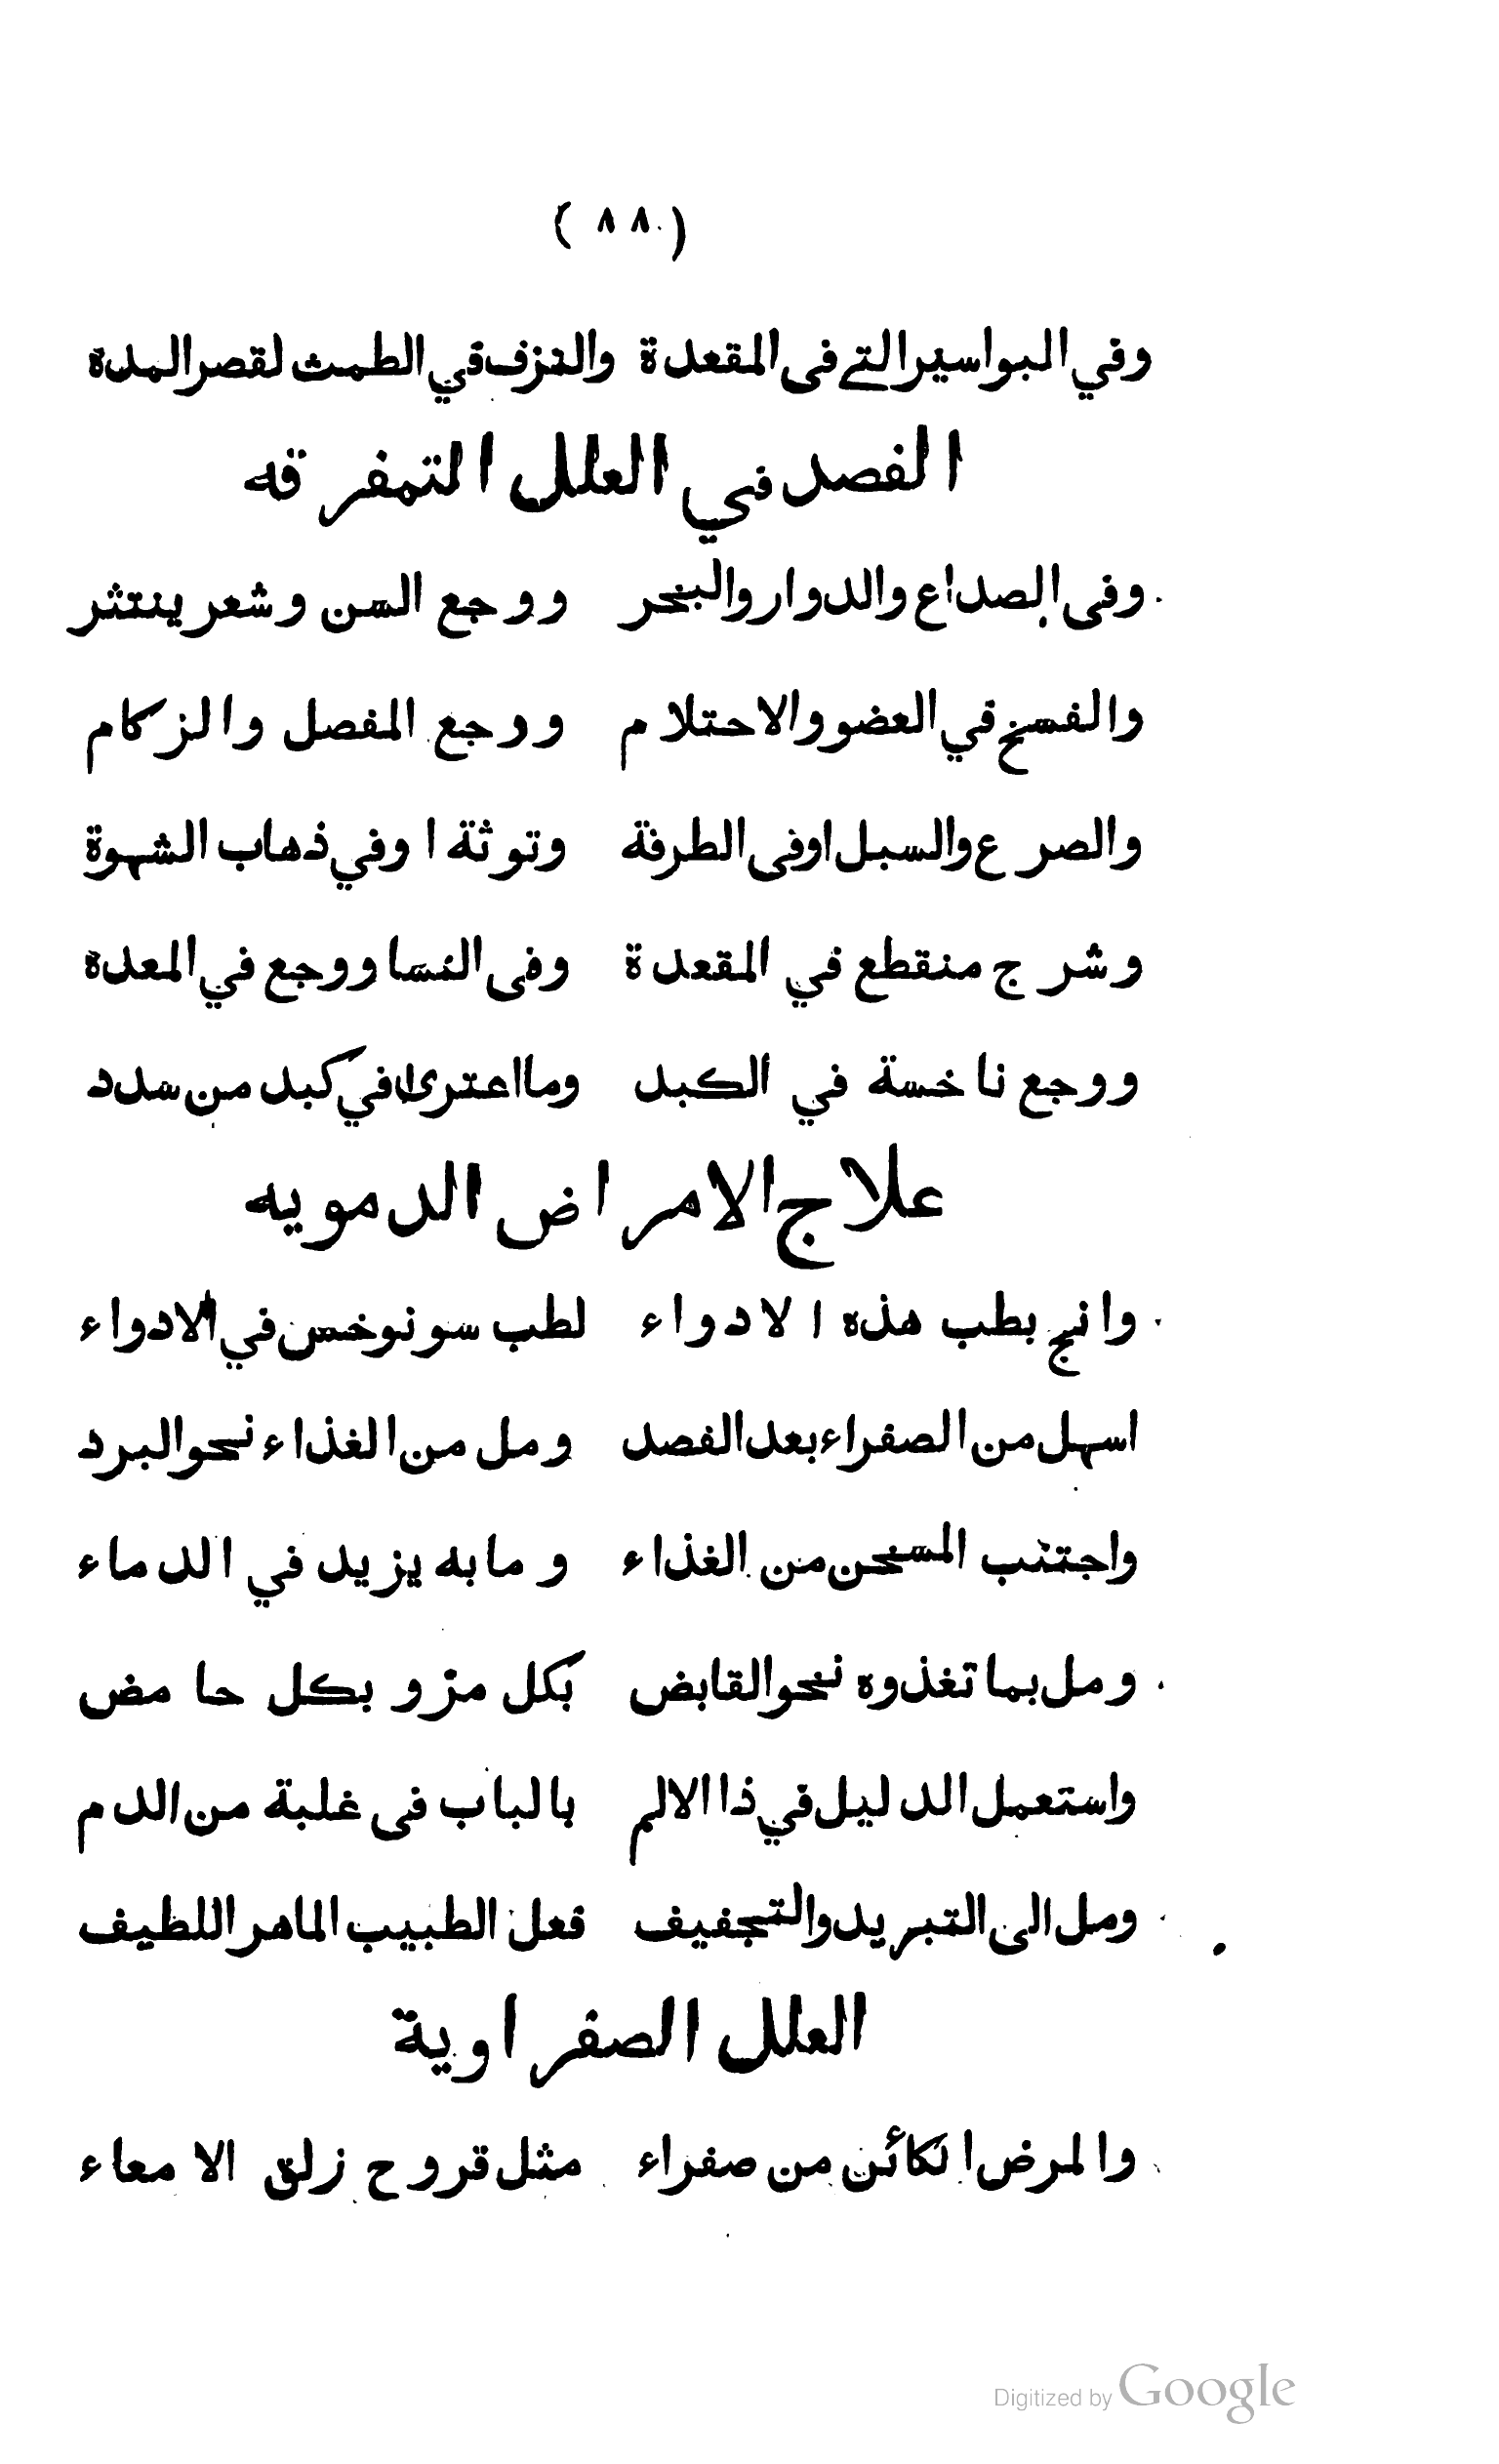 (٨٨)
وفي البواسير التي فى المقعدة والنزف في الطمث لقصر المدة
الفصد في العلل التمفرقه
وفى الصداع والدوار والبخر ووجع السن وشعر ينتثر
والفسخ في العضو والاحتلام ووجع المفصل والزكام
والصرع والسبل او فى الطرفة وتوثة او في ذهاب الشهوة
وشرج منقطع في المقعدة وفى النسا ووجع في المعدة
ووجع ناخسة في الكبد وما اعترى في كبد من سدد
علاج الامراض الدمويه
وانح بطب هذه الادواء لطب سونوخس في الادواء
اسهل من الصفراء بعد الفصد ومل من الغذاء نحو البرد
واجتنب المسخن من الغذاء وما به يزيد في الدماء
ومل بما تغذوه نحو القابض بكل مز وبكل حامض
واستعمل الدليل في ذا الالم بالباب فى غلبة من الدم
ومل الى التبريد والتجفيف فعل الطبيب الماهر اللطيف
العلل الصفراوية
والمرض الكائن من صفراء مثل قروح زلق الامعاء
Digitized by Google